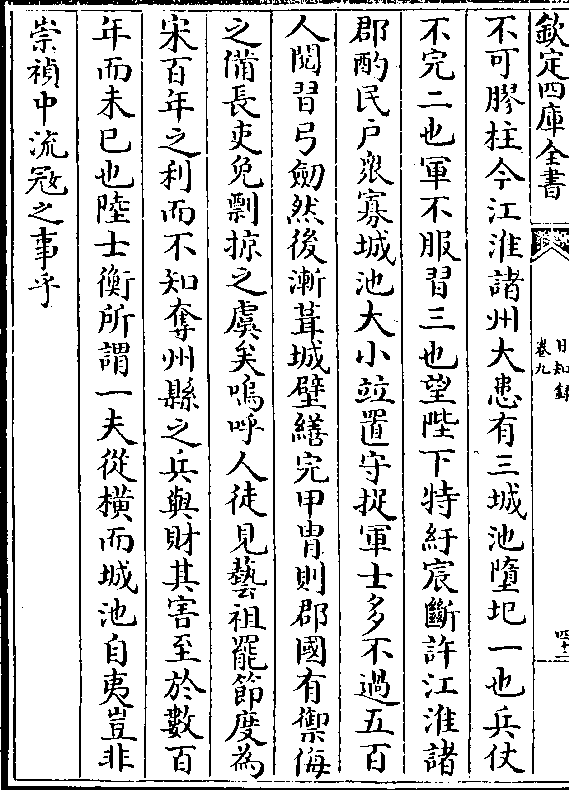 欽定四庫全書
日知錄
卷九
四十二
不可膠柱今江淮諸州大患有三城池墮圯一也兵仗
不完二也軍不服習三也望陛下特紆宸斷許江淮諸
郡酌民户衆寡城池大小竝置守捉軍士多不過五百
人閲習弓劒然後漸葺城壁繕完甲胄則郡國有禦侮
之備長吏免剽掠之虞矣嗚呼人徒見藝祖罷節度為
宋百年之利而不知奪州縣之兵與財其害至於數百
年而未已也陸士衡所謂一夫從橫而城池自夷豈非
崇禎中流冦之事乎